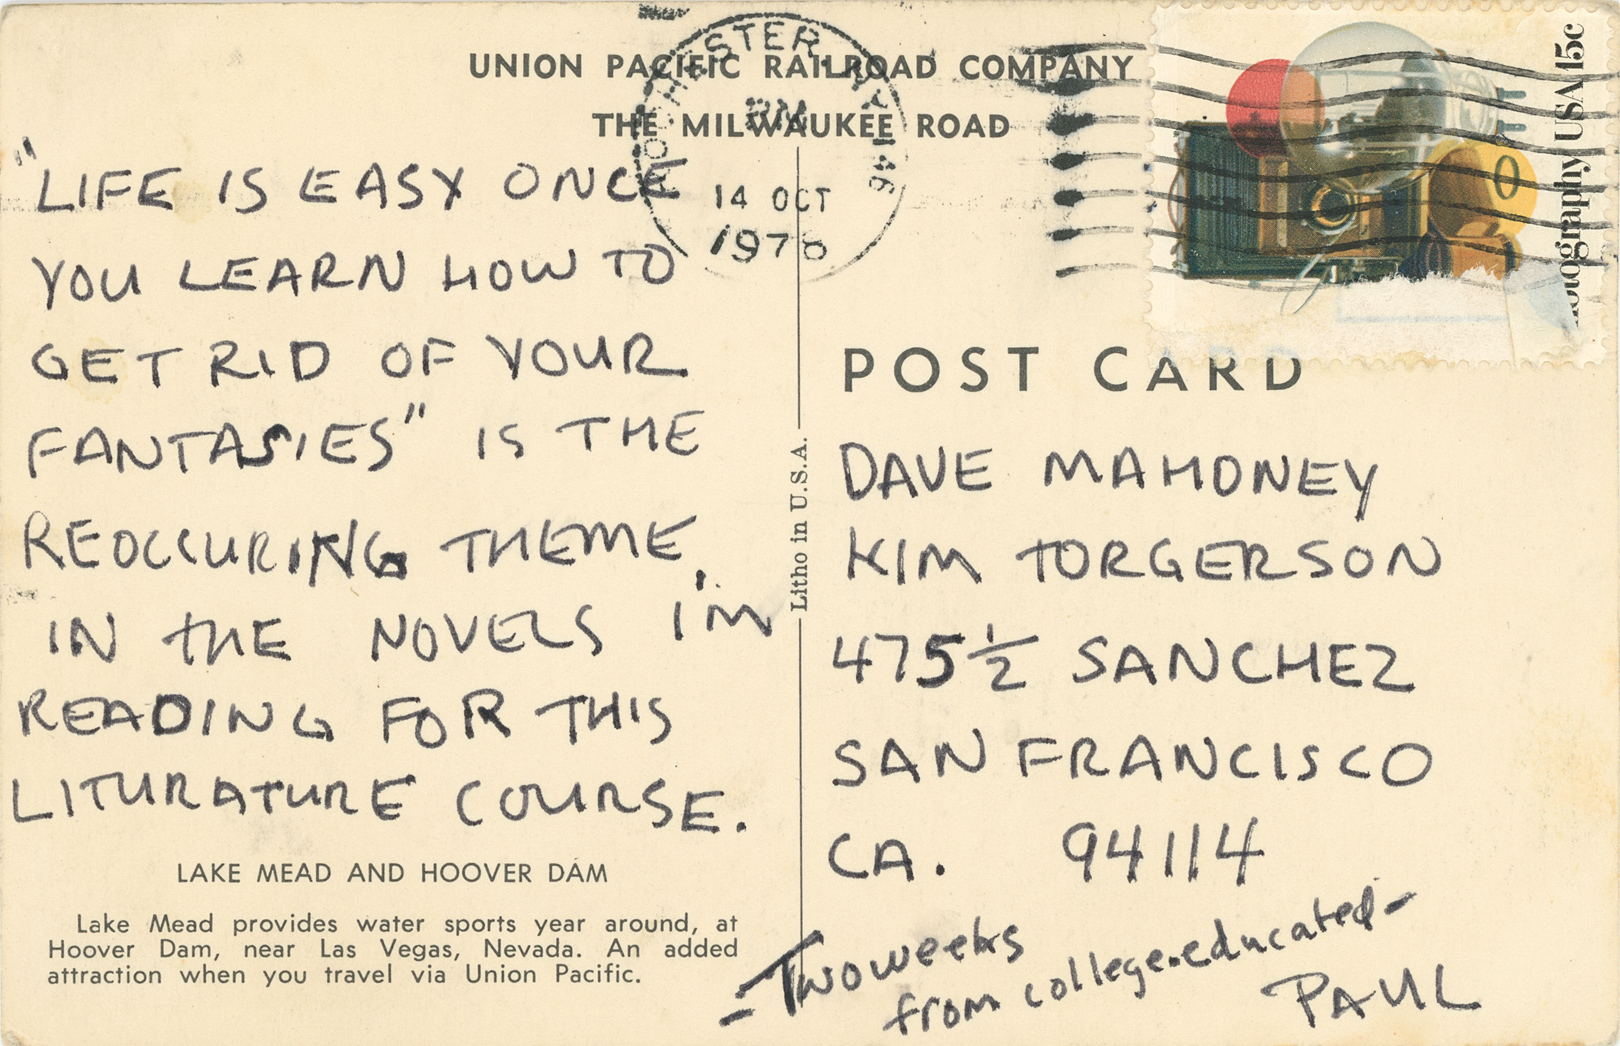 UNION PACIFIC RAILROAD COMPANY
THE MILWAUKEE ROAD
PM
146
14 OCT
1978
Photography USA 15c
"LIFE IS EASY ONCE
YOU LEARN HOW TO
GET RID OF YOUR
FANTASIES" IS THE
REOCCURING THEME,
IN THE NOVELS I'M
READING FOR THIS
LITURATURE COURSE.
LAKE MEAD AND HOOVER DAM
Lake Mead provides water sports year around, at
Hoover Dam, near Las Vegas, Nevada. An added
attraction when you travel via Union Pacific.
Litho in U.S.A.
POST CARD
DAVE MAHONEY
KIM TORGERSON
475½ SANCHEZ
SAN FRANCISCO
CA. 94114
- Two weeks
from college-educated -
PAUL